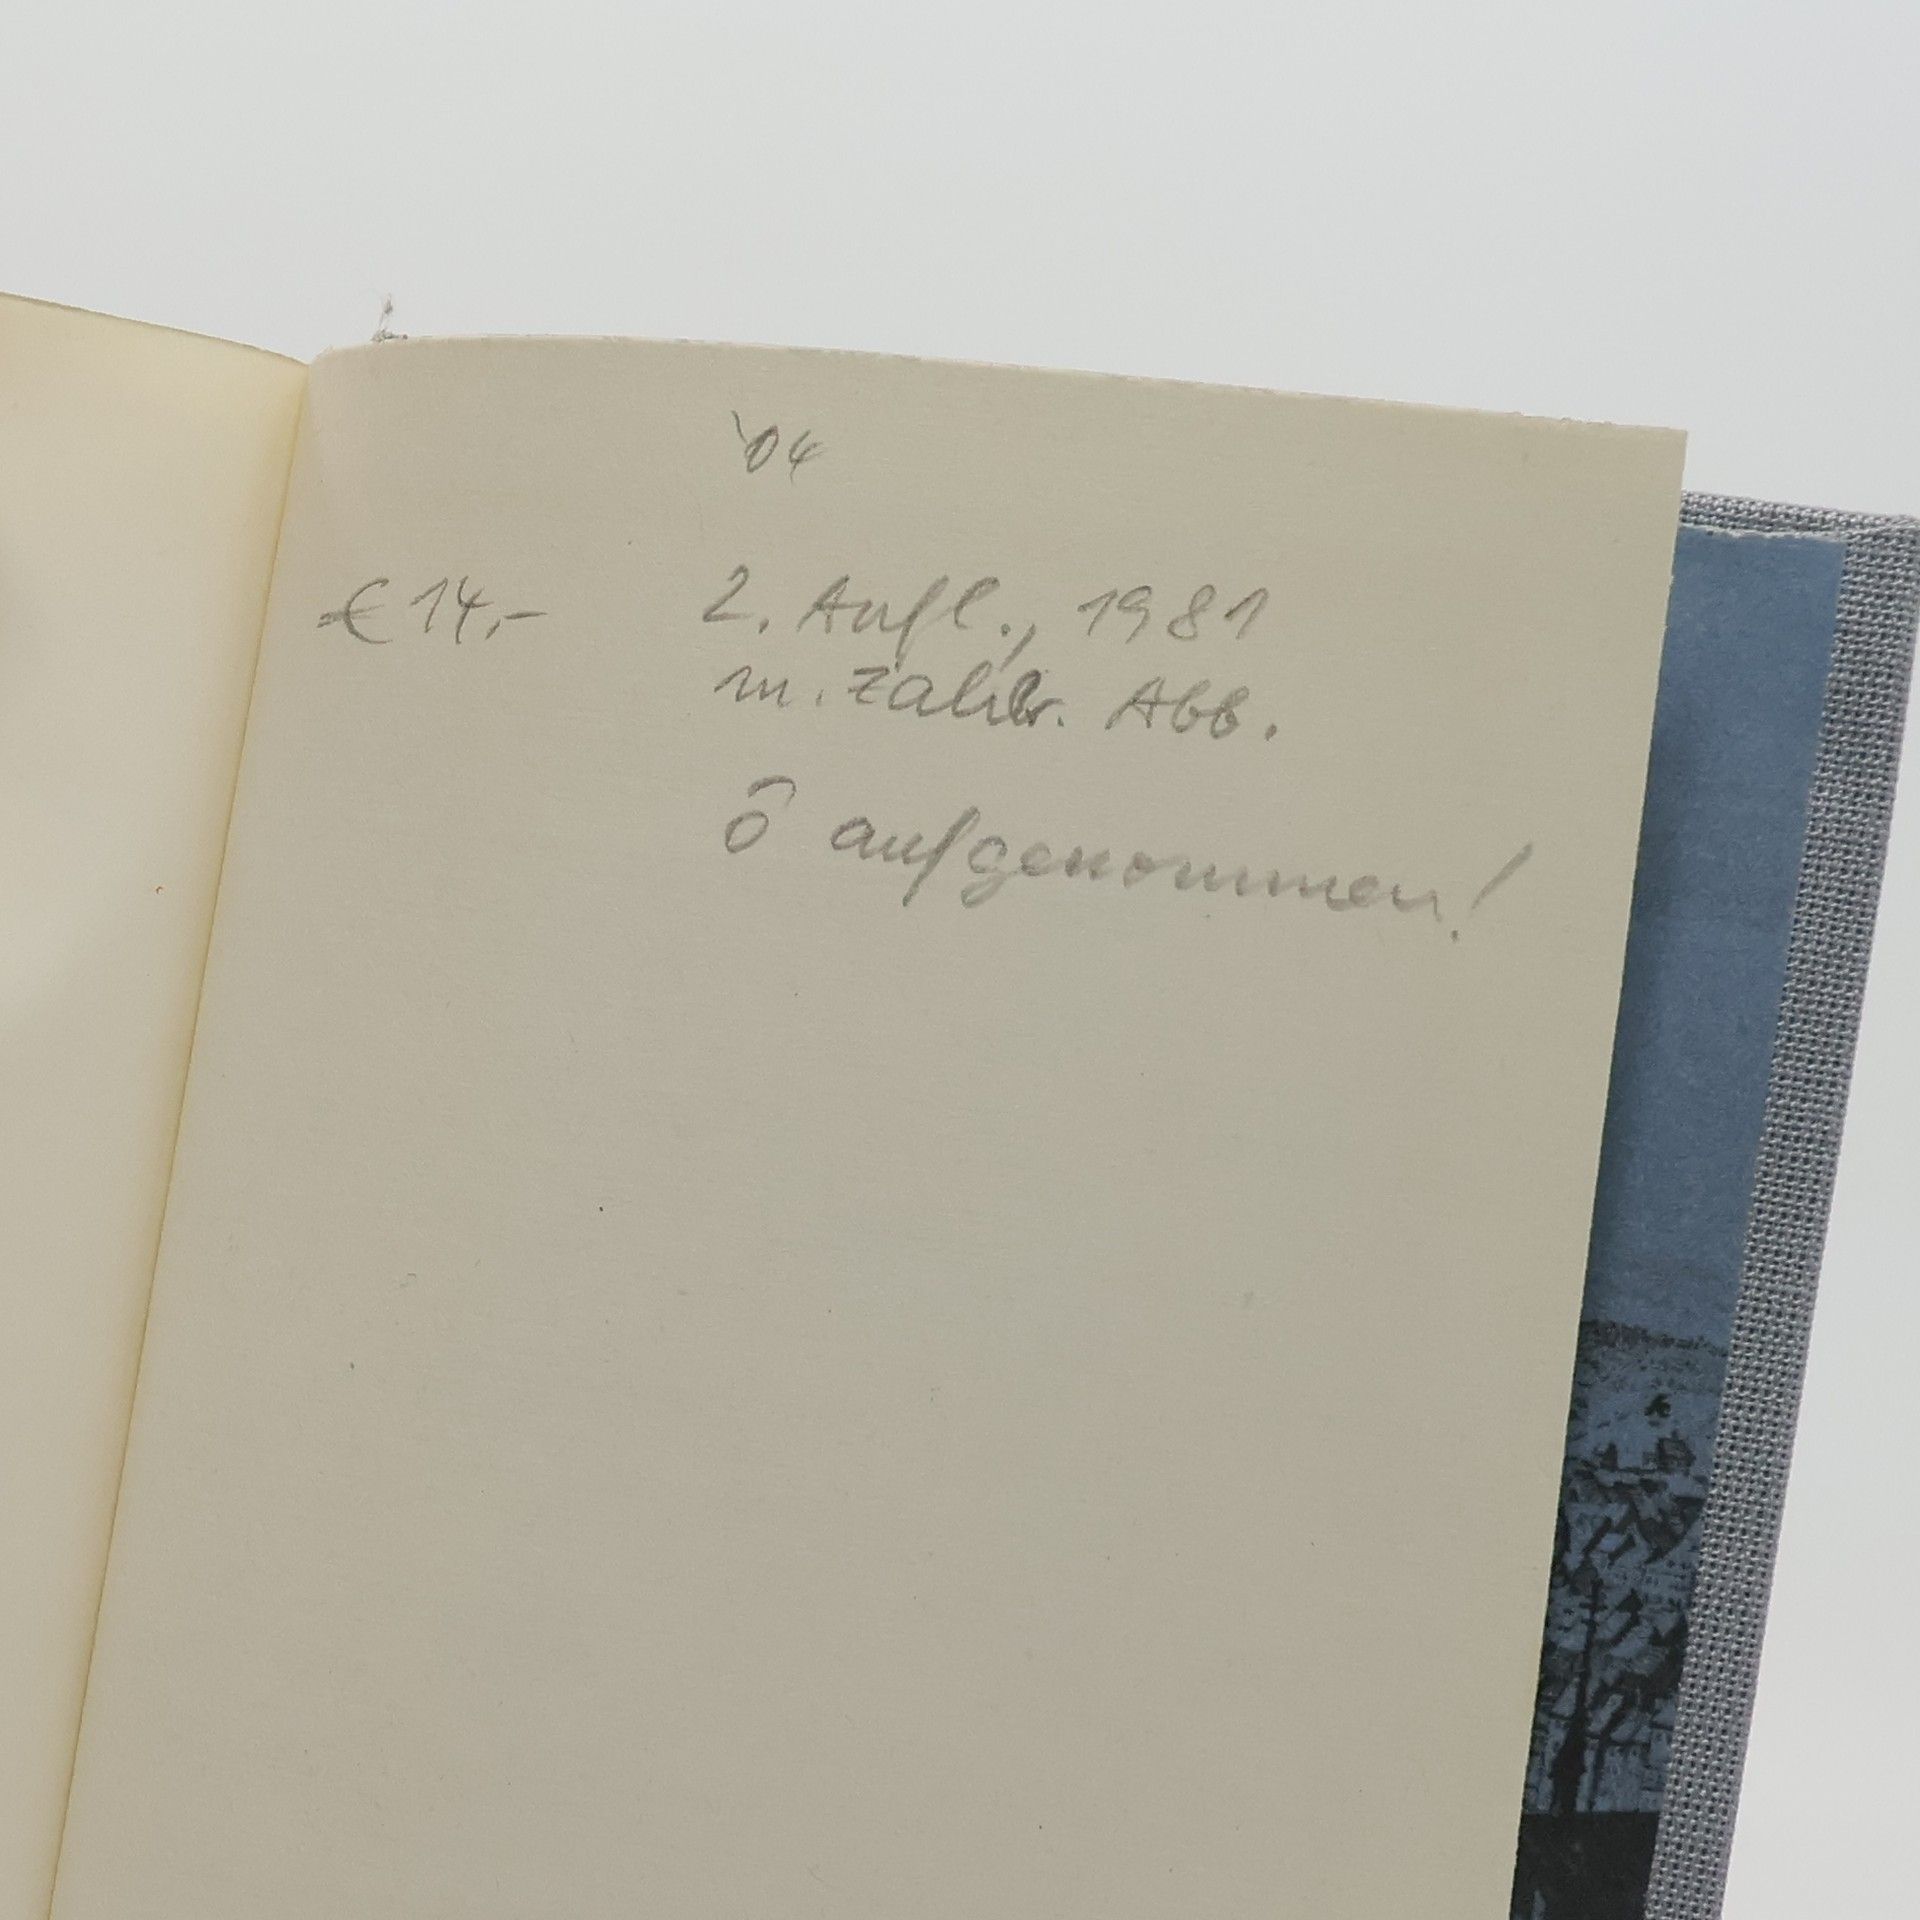 '04
€ 14,- 2. Aufl., 1981
m. zahlr. Abb.
ô aufgenommen!